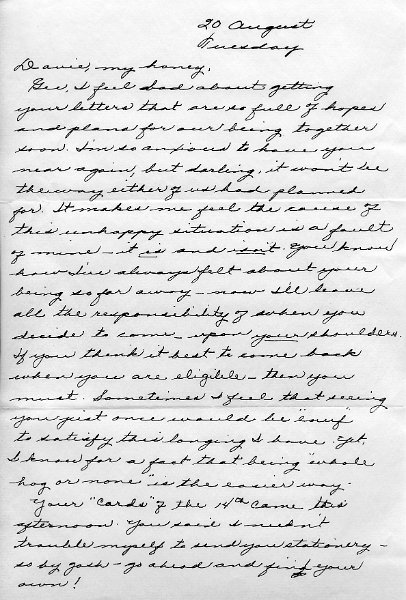 20 August
Tuesday
Davie, my honey,
Gee, I feel bad about getting
your letters that are so full of hopes
and plans for our being together
soon. I'm so anxious to have you
near again, but darling, it won't be
the way either of us had planned
for. It makes me feel the cause of
this unhappy situation is a fault
of mine - it is and isn't. You know
how I've always felt about your
being so far away - now I'll leave
all the responsibility of when you
decide to come - upon your shoulders.
If you think it best to come back
when you are eligible - then you
must. Sometimes I feel that seeing
you just once would be "enuf"
to satisfy this longing I have. Yet
I know for a fact that being "whole
hog or none" is the easier way.
Your "Cards" of the 14th came this
afternoon. You said I needn't
trouble myself to send you stationery -
so by gosh - go ahead and find your
own!